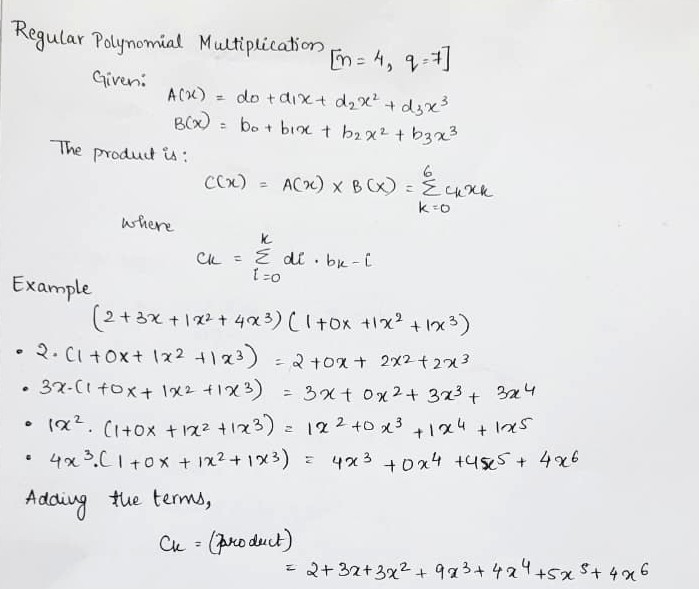 Regular Polynomial Multiplication [n = 4, q = 7]
Given:
A(x) = d0 + d1x + d2x² + d3x³
B(x) = b0 + b1x + b2x² + b3x³
The product is:
C(x) = A(x) × B(x) = Σ ckxk
6
k=0
where
ck = Σ di · bk-i
k
i=0
Example
(2 + 3x + 1x² + 4x³) (1 + 0x + 1x² + 1x³)
• 2 · (1 + 0x + 1x² + 1x³) = 2 + 0x + 2x² + 2x³
• 3x · (1 + 0x + 1x² + 1x³) = 3x + 0x² + 3x³ + 3x⁴
• 1x² · (1 + 0x + 1x² + 1x³) = 1x² + 0x³ + 1x⁴ + 1x⁵
• 4x³ · (1 + 0x + 1x² + 1x³) = 4x³ + 0x⁴ + 4x⁵ + 4x⁶
Adding the terms,
Ck = (product)
= 2 + 3x + 3x² + 9x³ + 4x⁴ + 5x⁵ + 4x⁶